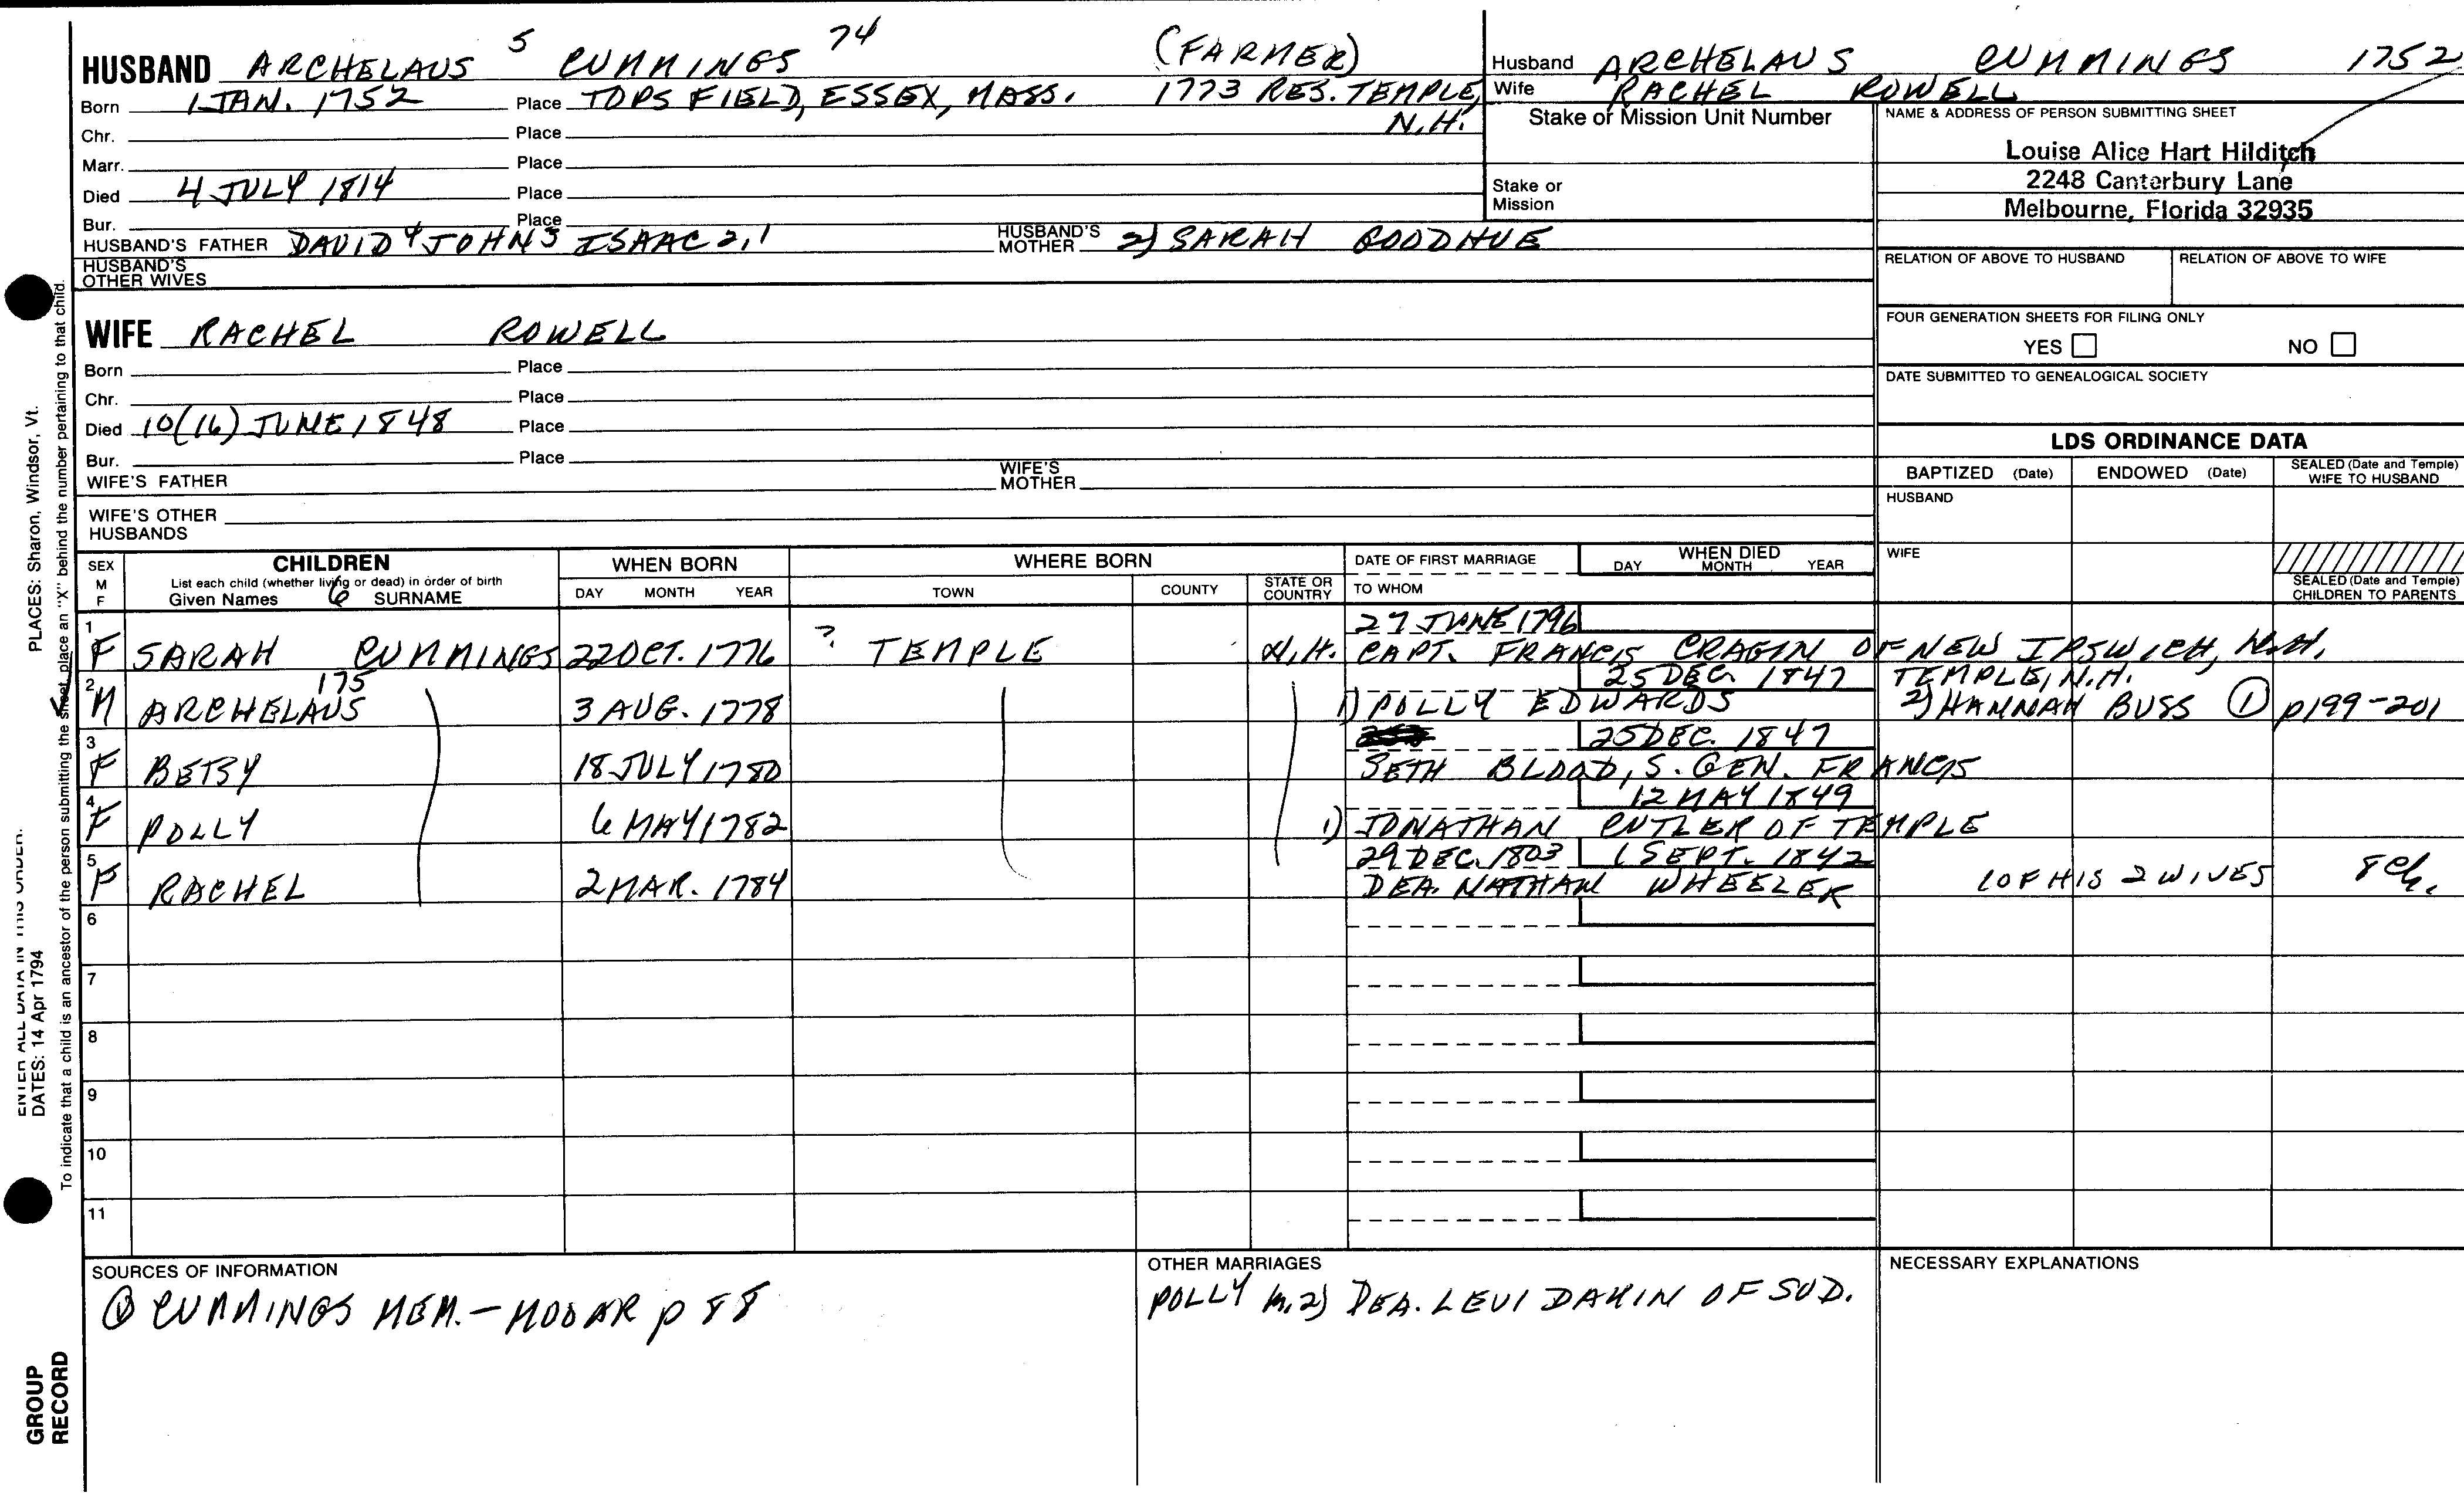 HUSBAND ARCHELAUS 5 CUMMINGS 74 (FARMER)
Born 1 JAN. 1752 Place TOPSFIELD, ESSEX, MASS. 1773 RES. TEMPLE, N.H.
Chr. Place
Marr. Place
Died 4 JULY 1814 Place
Bur. Place
HUSBAND'S FATHER DAVID 4 JOHN 3 ISAAC 2,1 HUSBAND'S MOTHER 2) SARAH GOODHUE
HUSBAND'S OTHER WIVES
WIFE RACHEL ROWELL
Born Place
Chr. Place
Died 10(16) JUNE 1848 Place
Bur. Place
WIFE'S FATHER WIFE'S MOTHER
WIFE'S OTHER HUSBANDS
Husband ARCHELAUS CUMMINGS 1752
Wife RACHEL ROWELL
Stake or Mission Unit Number
Stake or Mission
NAME & ADDRESS OF PERSON SUBMITTING SHEET
Louise Alice Hart Hilditch
2248 Canterbury Lane
Melbourne, Florida 32935
RELATION OF ABOVE TO HUSBAND RELATION OF ABOVE TO WIFE
FOUR GENERATION SHEETS FOR FILING ONLY
YES NO
DATE SUBMITTED TO GENEALOGICAL SOCIETY
LDS ORDINANCE DATA
BAPTIZED (Date) ENDOWED (Date) SEALED (Date and Temple) WIFE TO HUSBAND
HUSBAND
WIFE
SEALED (Date and Temple) CHILDREN TO PARENTS
SEX M F
CHILDREN
List each child (whether living or dead) in order of birth
Given Names 6 SURNAME
WHEN BORN
DAY MONTH YEAR
WHERE BORN
TOWN COUNTY STATE OR COUNTRY
DATE OF FIRST MARRIAGE
TO WHOM
WHEN DIED
DAY MONTH YEAR
27 JUNE 1796
1 F SARAH CUMMINGS 22 OCT. 1776 ? TEMPLE N.H. CAPT. FRANCIS CRAGIN OF NEW IPSWICH, N.H.
175 25 DEC. 1847 TEMPLE, N.H.
2 M ARCHELAUS 3 AUG. 1778 1) POLLY EDWARDS 2) HANNAH BUSS 1 p199-201
25 DEC. 1847
3 F BETSY 18 JULY 1780 SETH BLOOD, S. GEN. FRANCIS
12 MAY 1849
4 F POLLY 6 MAY 1782 1) JONATHAN CUTLER OF TEMPLE
29 DEC. 1803 1 SEPT. 1842
5 F RACHEL 2 MAR. 1784 DEA. NATHAN WHEELER 1 OF HIS 2 WIVES 8 Ch.
6
7
8
9
10
11
SOURCES OF INFORMATION
1 CUMMINGS MEM.-MOOAR p 88
OTHER MARRIAGES
POLLY m. 2) DEA. LEVI DAKIN OF SUD.
NECESSARY EXPLANATIONS
ENTER ALL DATA IN THIS ORDER:
DATES: 14 Apr 1794
PLACES: Sharon, Windsor, Vt.
To indicate that a child is an ancestor of the person submitting the sheet, place an "X" behind the number pertaining to that child.
GROUP RECORD